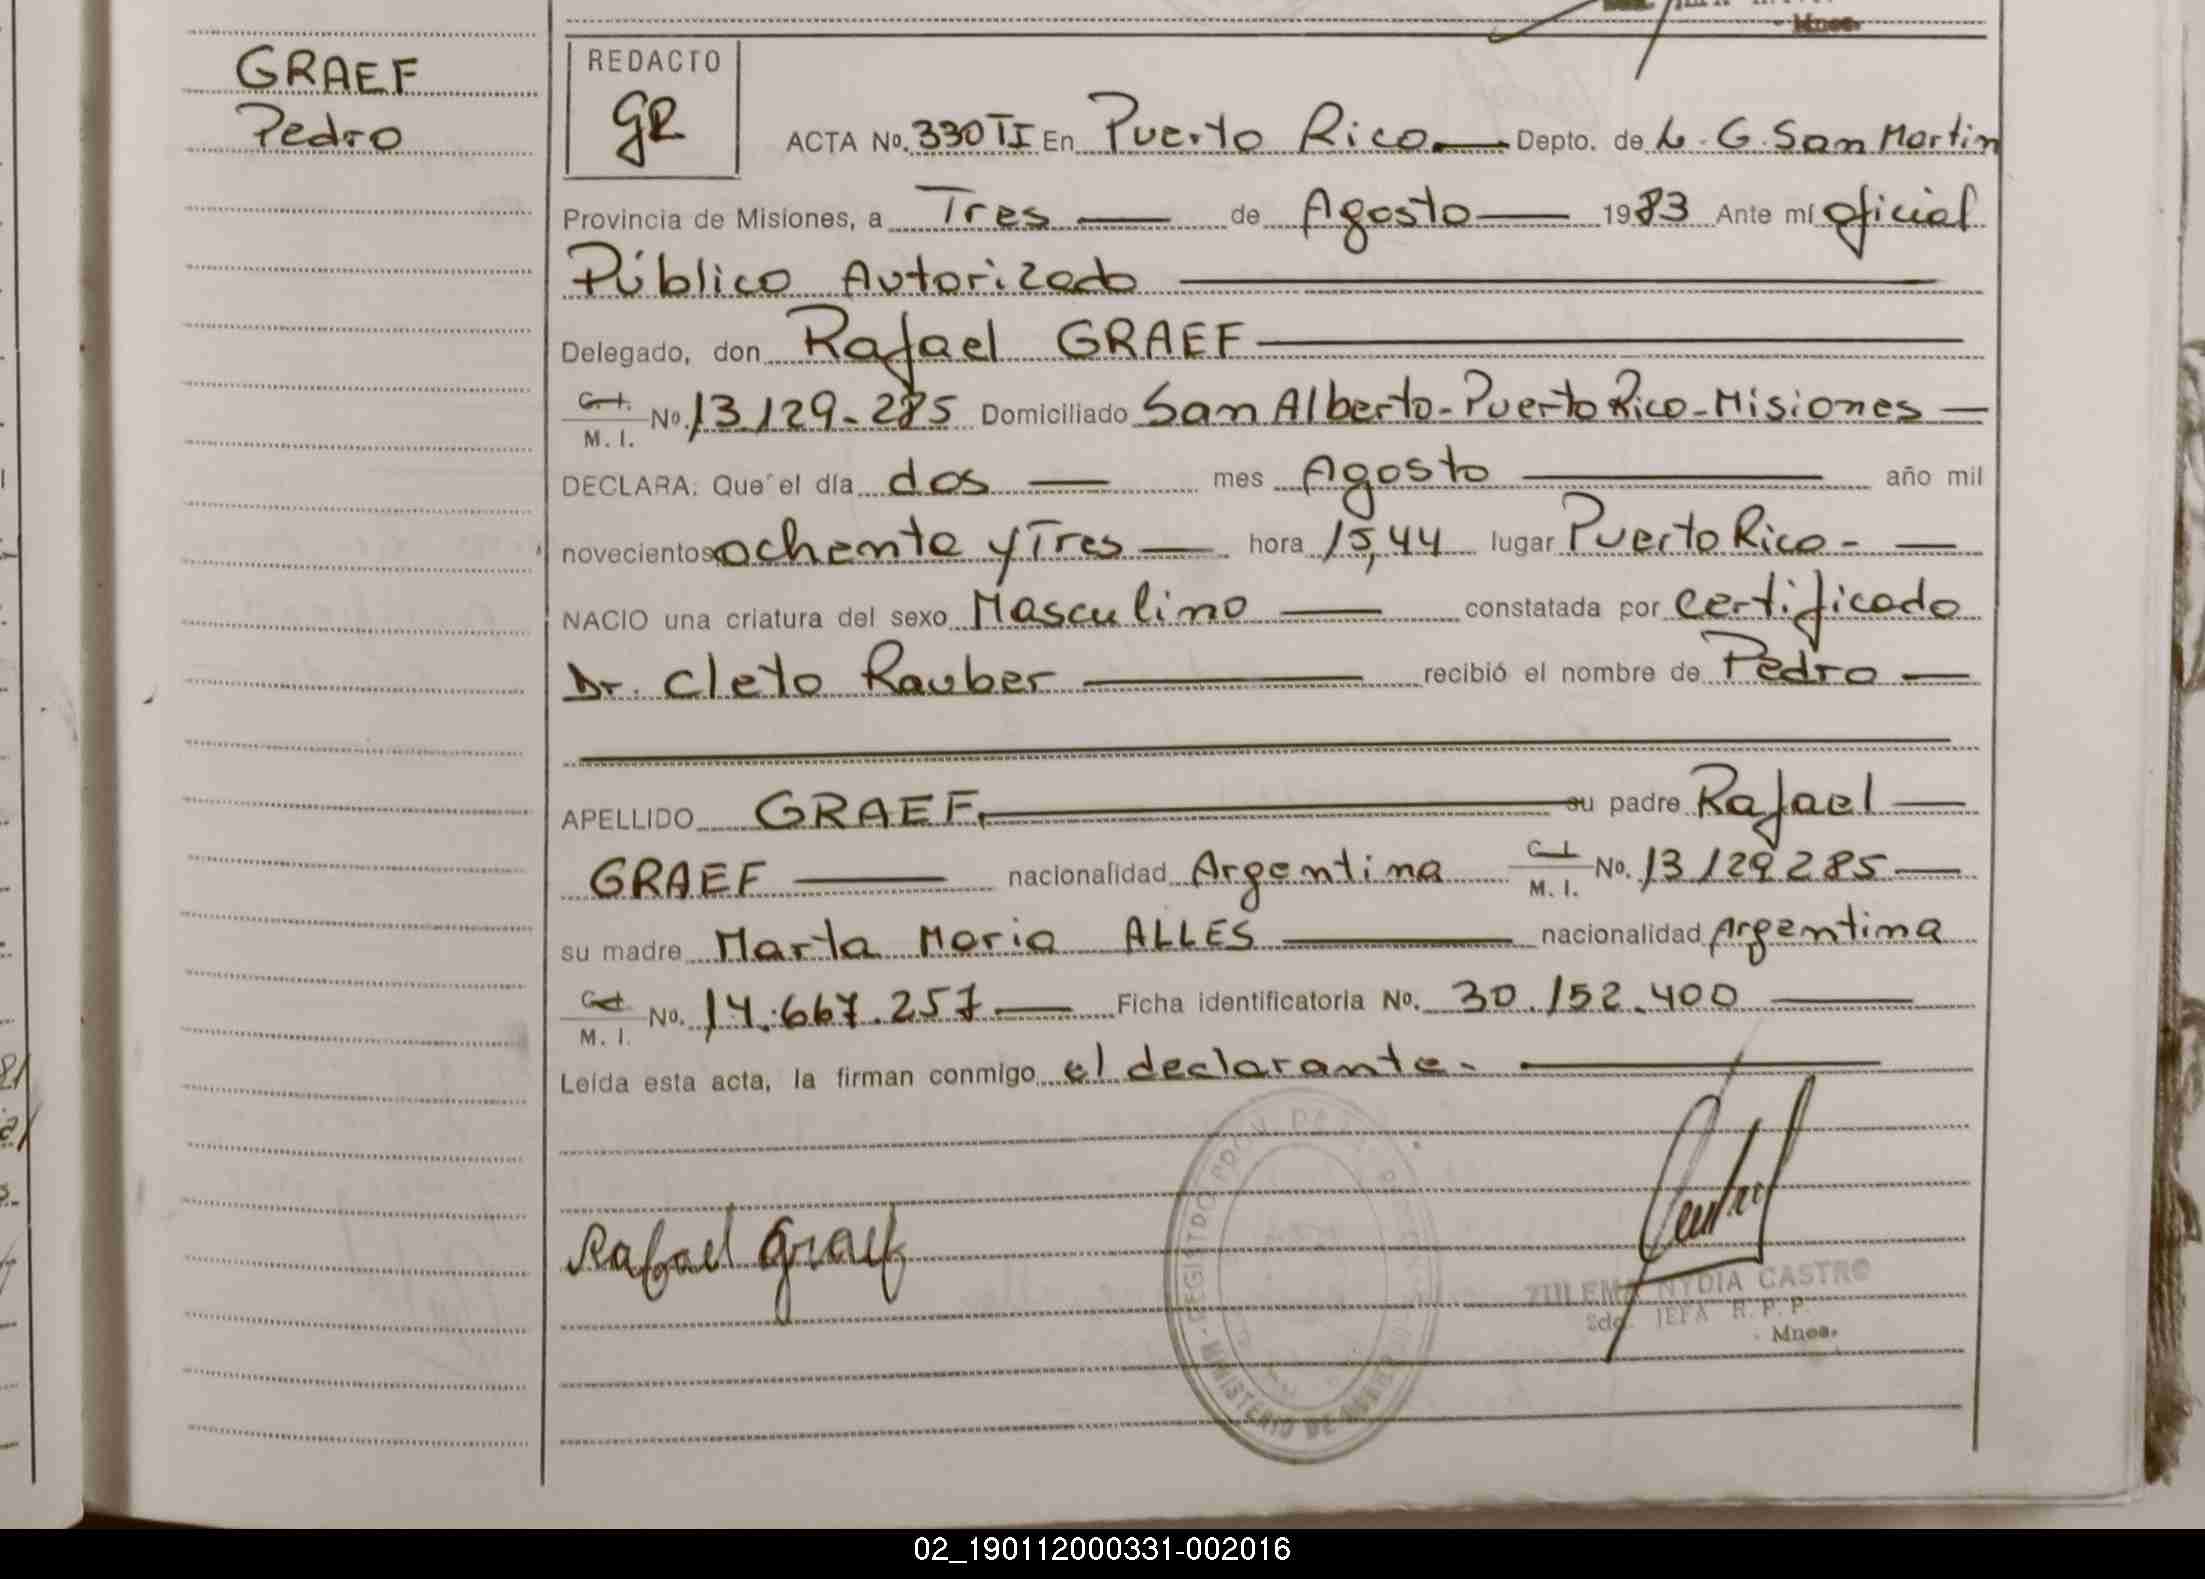 Mnes.
GRAEF
Pedro
REDACTO
GR
ACTA No. 330 TI En Puerto Rico. Depto. de L. G. San Martin
Provincia de Misiones, a Tres de Agosto 1983 Ante mí oficial
Público Autorizado
Delegado, don Rafael GRAEF
C. I. M. I. No. 13.129.285 Domiciliado San Alberto-Puerto Rico-Misiones
DECLARA: Que el día dos mes Agosto año mil
novecientos ochenta y Tres hora 15,44 lugar Puerto Rico-
NACIO una criatura del sexo Masculino constatada por certificado
Dr. Cleto Rauber recibió el nombre de Pedro
APELLIDO GRAEF su padre Rafael
GRAEF nacionalidad Argentina C. I. M. I. No. 13129285
su madre Marta Maria ALLES nacionalidad Argentina
C. I. M. I. No. 14.667.257 Ficha identificatoria No. 30.152.400
Leída esta acta, la firman conmigo el declarante.
Rafael Graef
MINISTERIO DE
ZULEMA NYDIA CASTRO
2do. JEFA R. P. P.
Mnes.
02_190112000331-002016